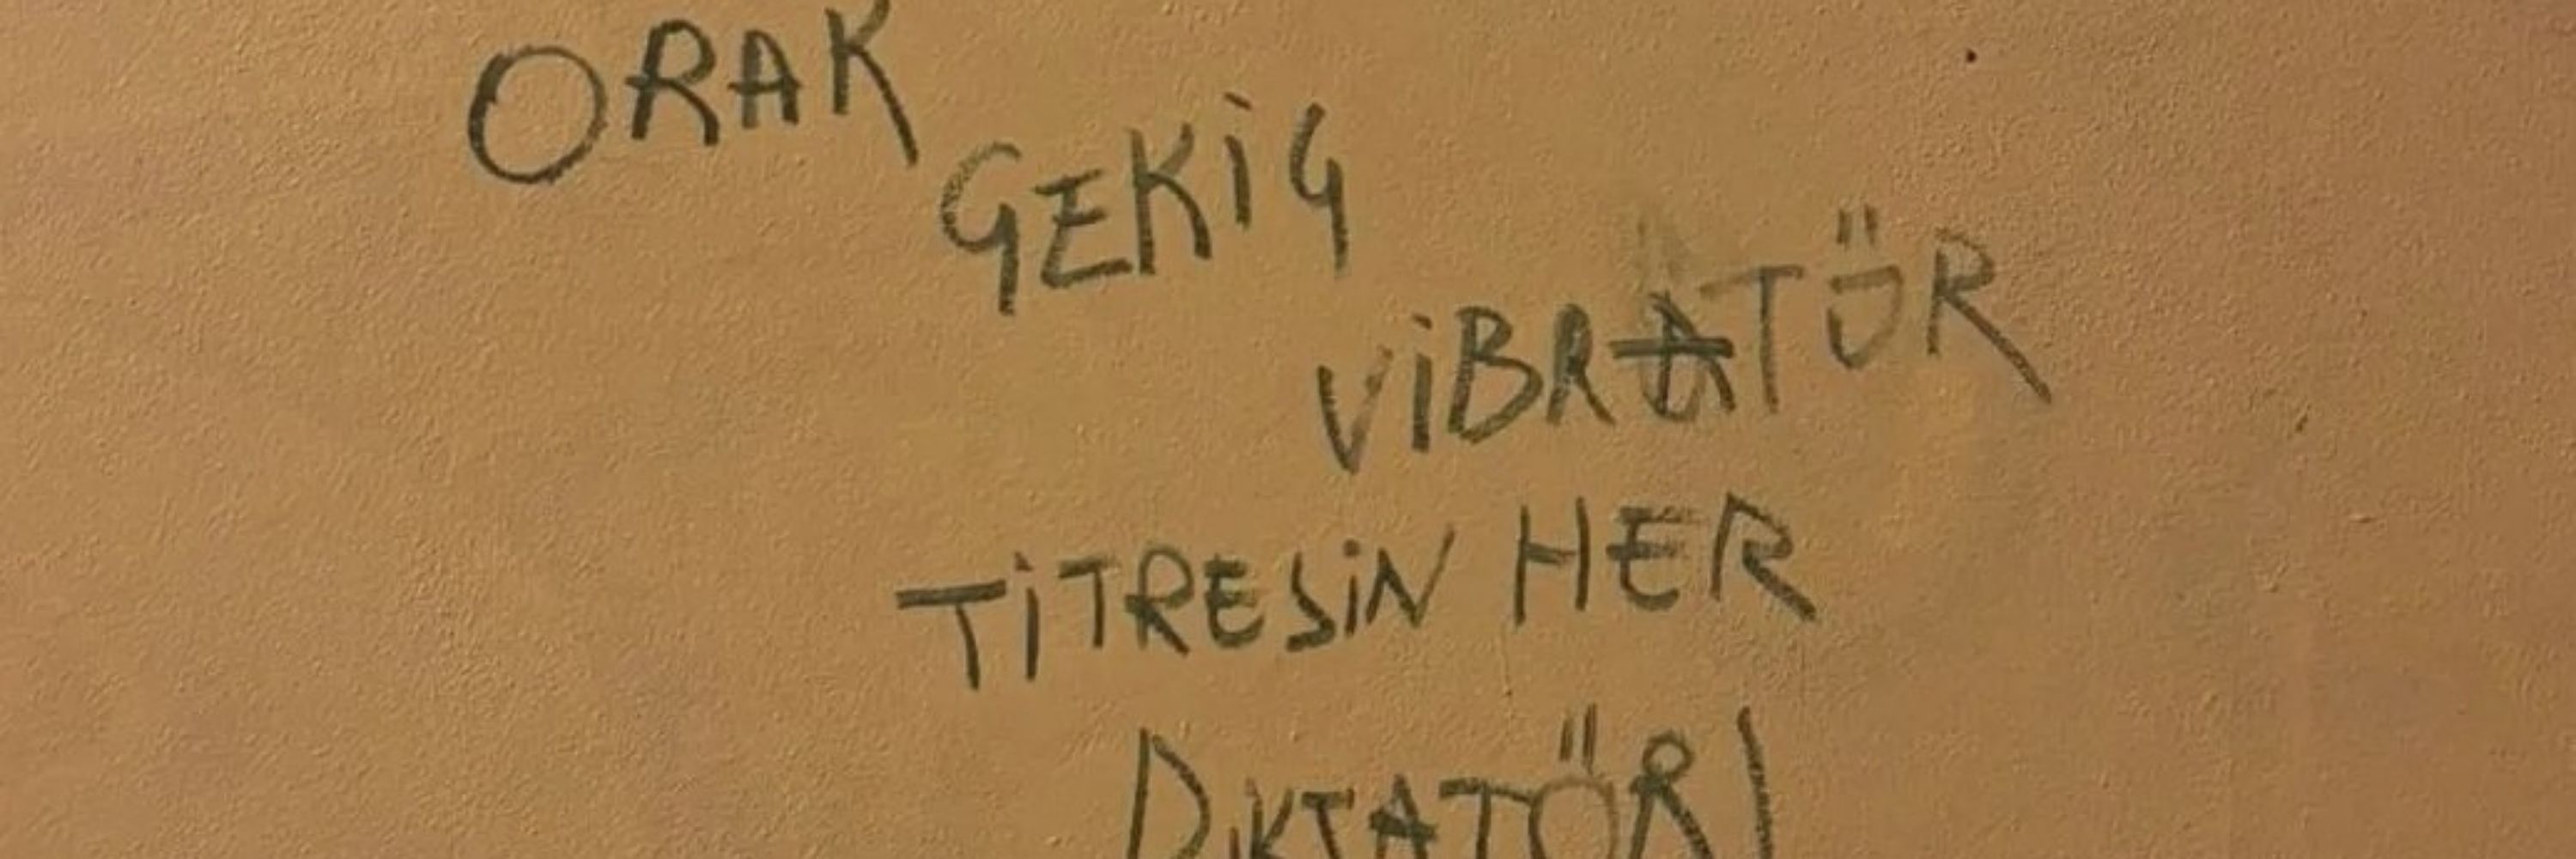 ORAK
ÇEKİÇ
VİBRATÖR
TİTRESİN HER
DİKTATÖR!